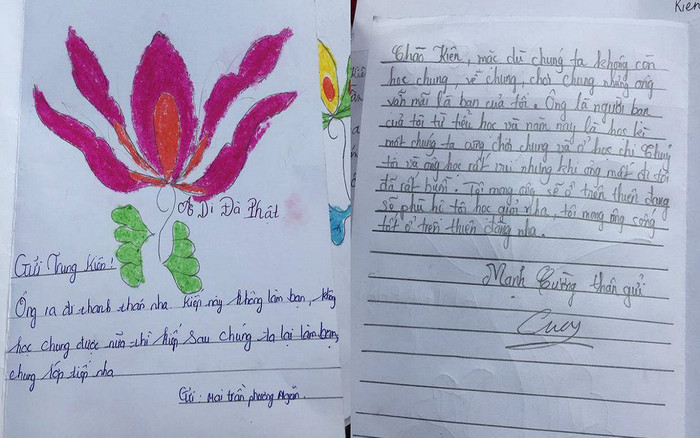 A Di Đà Phật
Gửi Trung Kiên!
Ông ra đi thanh thản nha. Kiếp này không làm bạn, không
học chung được nữa thì kiếp sau chúng ta lại làm bạn,
chung lớp tiếp nha
Gửi: Mai trần phương Ngân.
Kiên
Chào Kiên, mặc dù chúng ta không còn
học chung, vẽ chung, chơi chung nhưng ông
vẫn mãi là bạn của tôi. Ông là người bạn
của tôi từ tiểu học và năm nay là học lè
một chúng ta cùng chơi chung và ở học chị Thuỷ
tôi và ông học rất vui nhưng khi ông mất đi tôi
đã rất buồn. Tôi mong ông sẽ ở trên thiên đang
sẽ phù hộ tôi học giỏi nha, tôi mong ông sống
tốt ở trên thiên đằng nha.
Mạnh Cường thân gửi
Cuoy